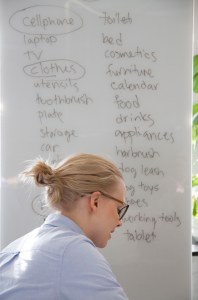 cellphone toilet
laptop bed
TV cosmetics
clothes furniture
utensils calendar
toothbrush food
plate drinks
storage appliances
car hairbrush
dog leash
dog toys
working tools
tablet